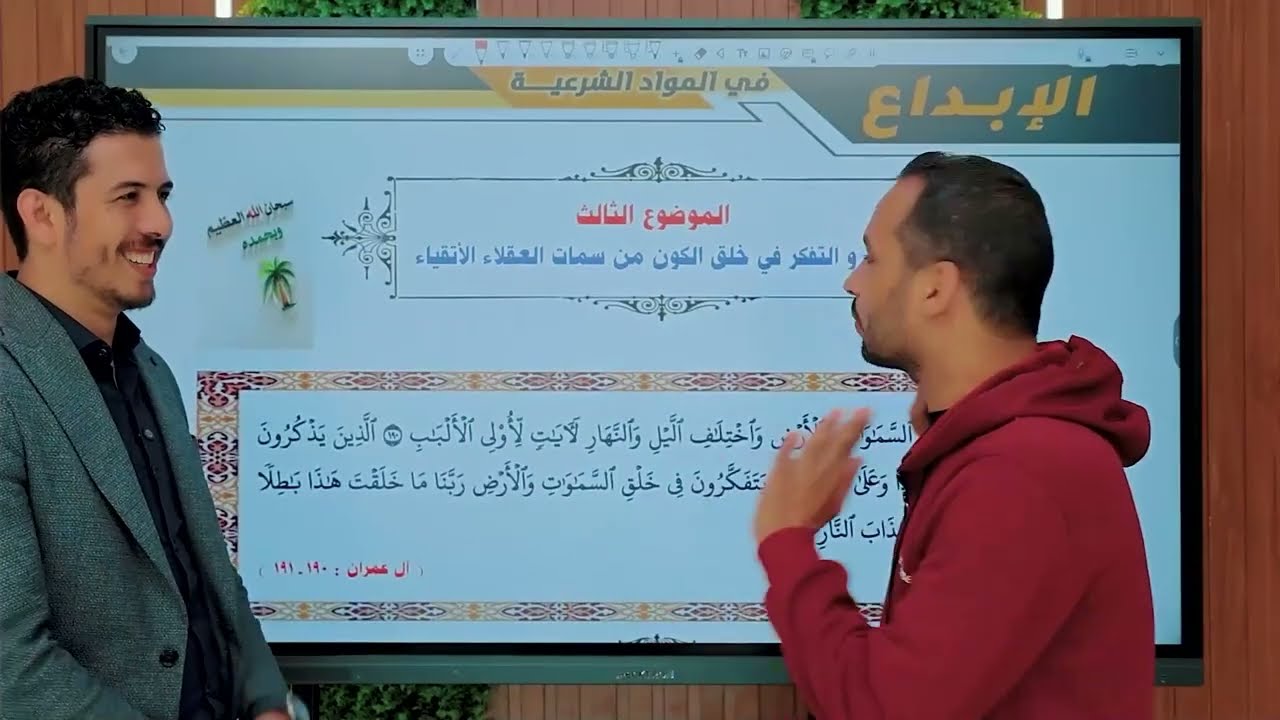 الإبداع
في المواد الشرعيـــة
سبحان الله العظيم
وبحمده
الموضوع الثالث
و التفكر في خلق الكون من سمات العقلاء الأتقياء
ٱلسَّمَٰوَٰتِ وَٱلْأَرْضِ وَٱخْتِلَٰفِ ٱلَّيْلِ وَٱلنَّهَارِ لَءَايَٰتٍ لِّأُو۟لِى ٱلْأَلْبَٰبِ ١٩٠ ٱلَّذِينَ يَذْكُرُونَ
وَعَلَىٰ يَتَفَكَّرُونَ فِى خَلْقِ ٱلسَّمَٰوَٰتِ وَٱلْأَرْضِ رَبَّنَا مَا خَلَقْتَ هَٰذَا بَٰطِلًا
عَذَابَ ٱلنَّارِ
( آل عمران : ١٩٠ ـ ١٩١ )